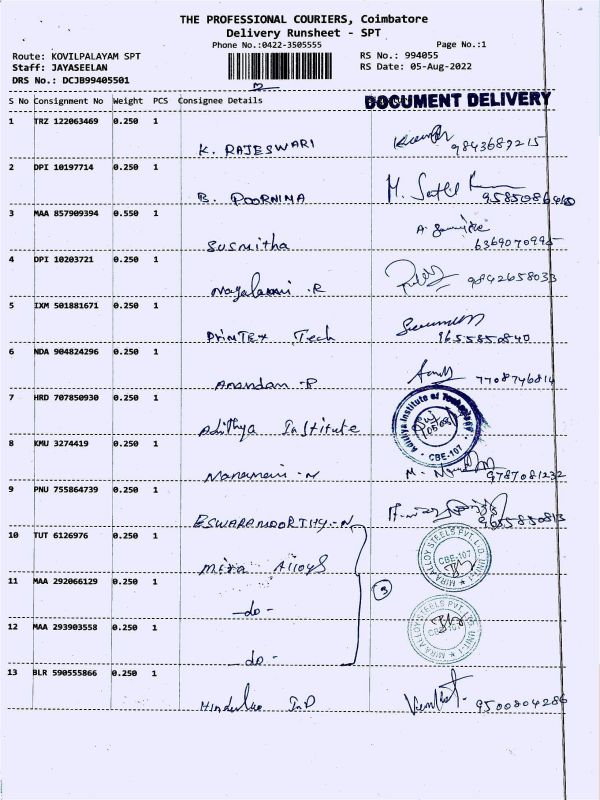 THE PROFESSIONAL COURIERS, Coimbatore
Delivery Runsheet - SPT
Phone No.:0422-3505555 Page No.:1
Route: KOVILPALAYAM SPT RS No.: 994055
Staff: JAYASEELAN RS Date: 05-Aug-2022
DRS No.: DCJB99405501
S No Consignment No Weight PCS Consignee Details DOCUMENT DELIVERY
1 TRZ 122063469 0.250 1
K. RAJESWARI 9843689215
2 DPI 10197714 0.250 1
B. POORNIMA
3 MAA 857909394 0.550 1
Susmitha 6369070995
4 DPI 10203721 0.250 1
Nagalaxmi .R 9842658033
5 IXM 501881671 0.250 1
PRINTEX Tech 9655850840
6 NDA 904824296 0.250 1
Anandan .P 7708746814
7 HRD 707850930 0.250 1
Adithya Institute
Aditya Institute of Technology
CBE-107
8 KMU 3274419 0.250 1
9787081232
9 PNU 755864739 0.250 1
ESWARAMOORTHY.N 9655850813
10 TUT 6126976 0.250 1
Mira Alloys
MIRA ALLOY STEELS PVT. LTD. UNIT-I
CBE-107
11 MAA 292066129 0.250 1
-do-
3
12 MAA 293903558 0.250 1
-do-
MIRA ALLOY STEELS PVT. LTD. UNIT-I
CBE-107
13 BLR 590555866 0.250 1
9500804286